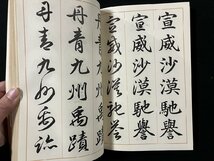 宣威沙漠馳譽
宣威沙漠馳譽
宣威沙漠馳譽
丹青九州禹蹟
丹青九州禹蹟
丹青九州禹跡